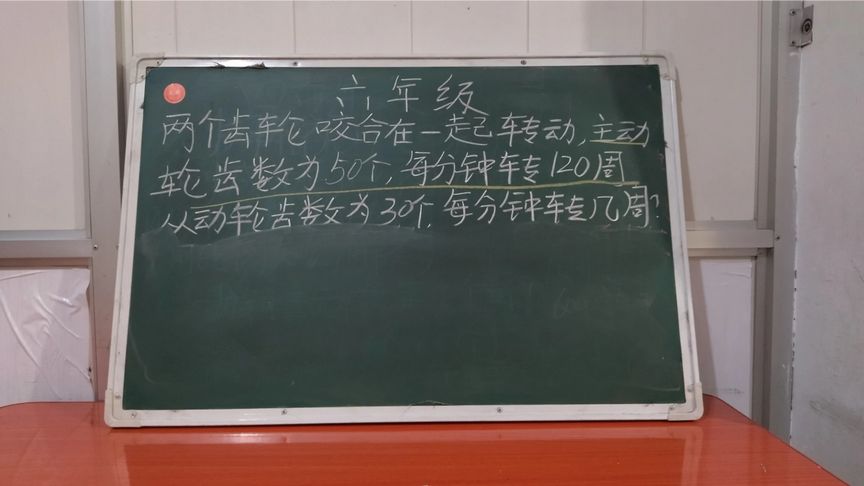 六年级
两个齿轮咬合在一起转动,主动
轮齿数为50个,每分钟转120周
从动轮齿数为30个,每分钟转几周?